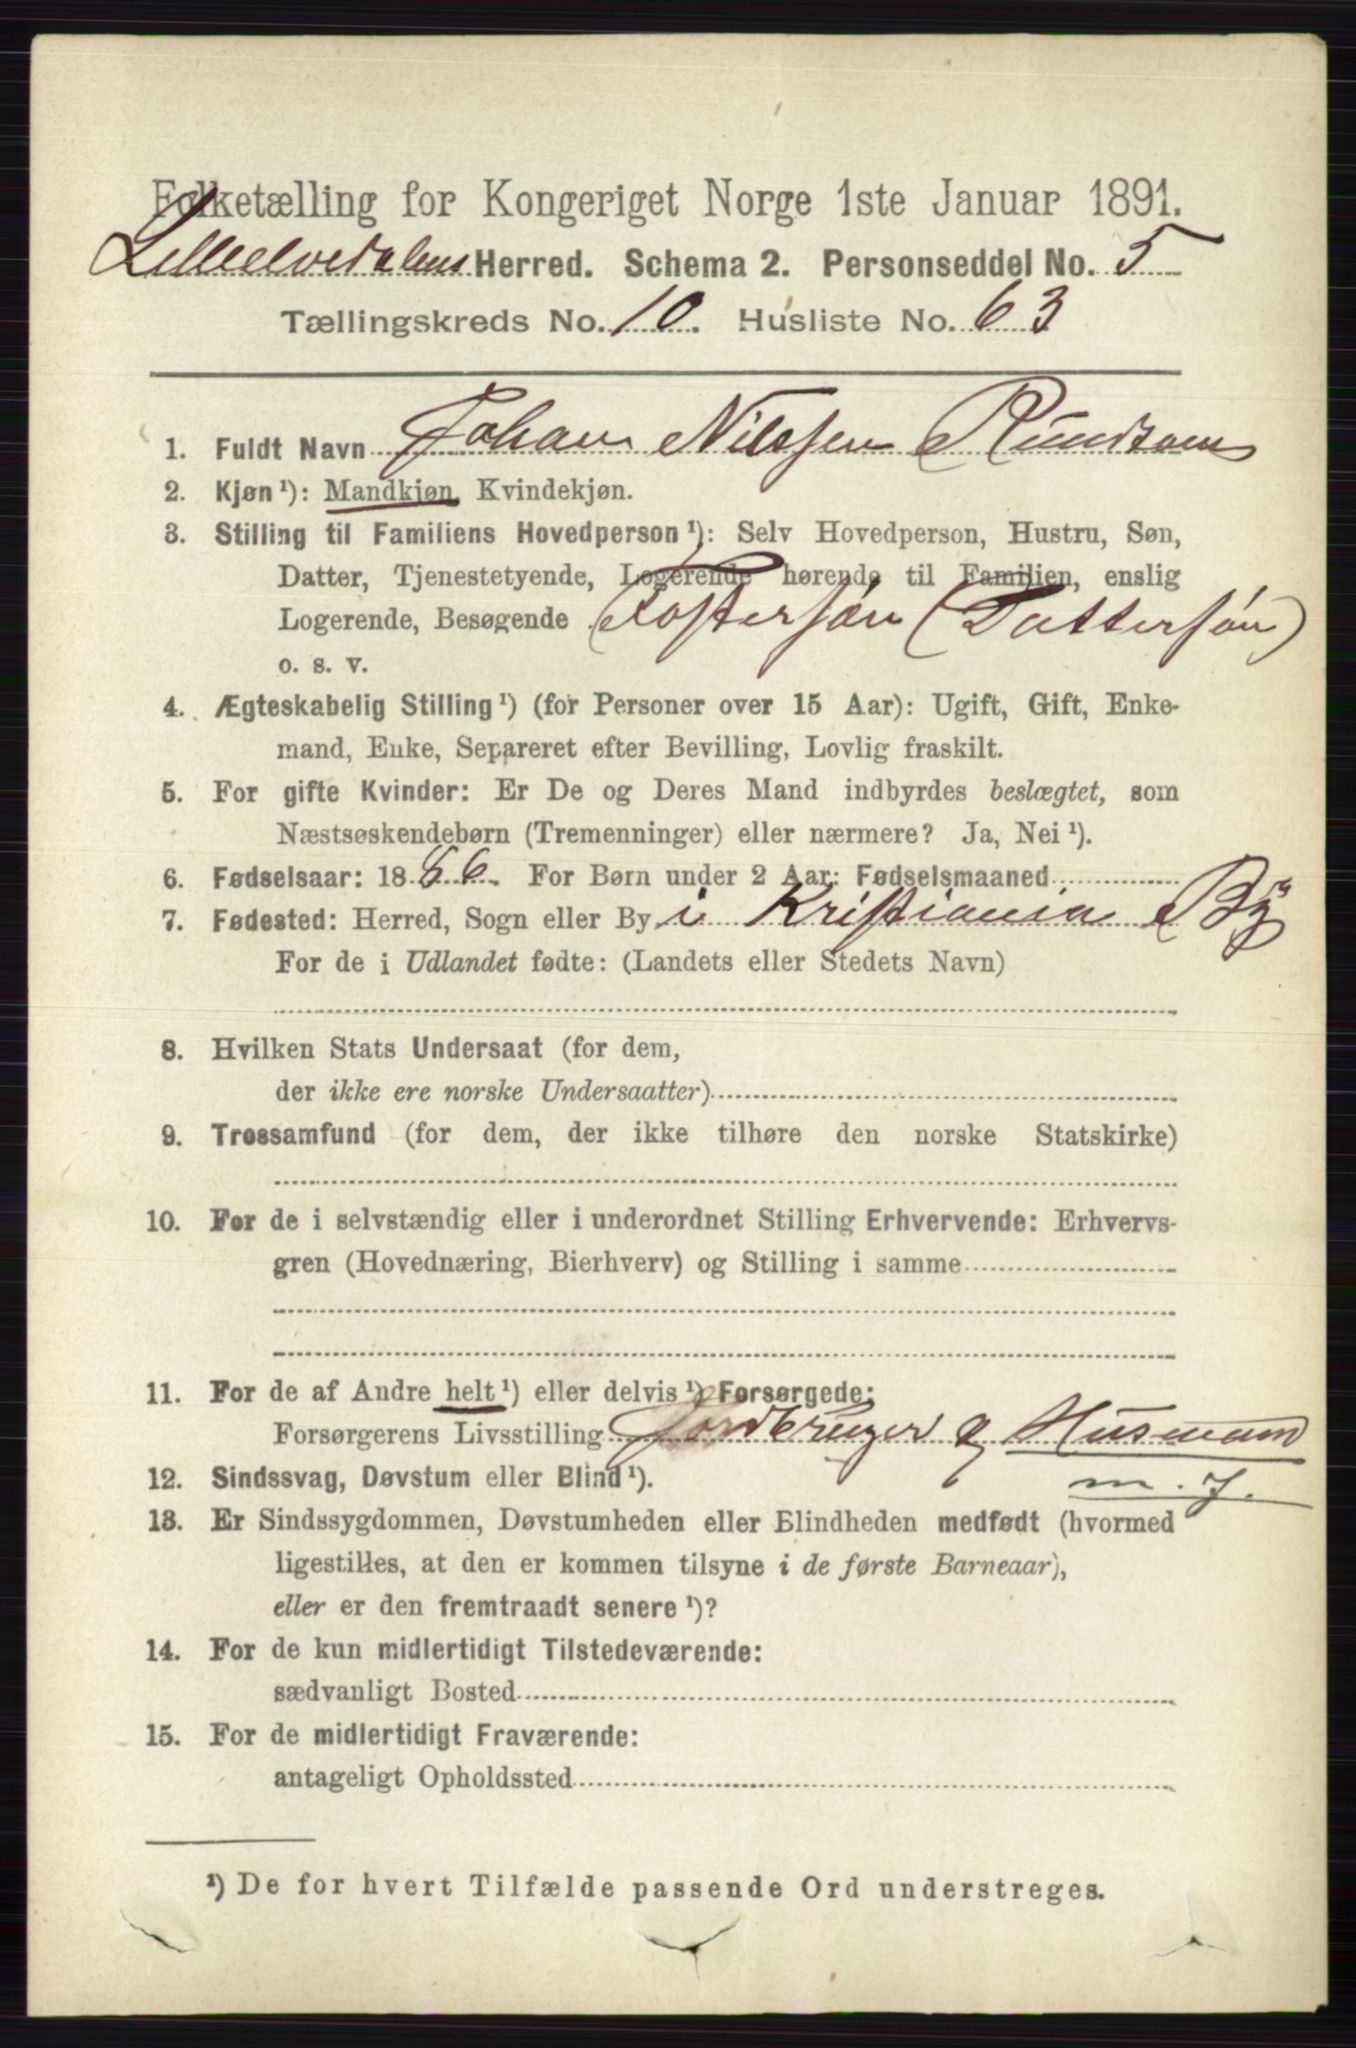 Folketælling for Kongeriget Norge 1ste Januar 1891.
Lilleelvedalens Herred. Schema 2. Personseddel No. 5
Tællingskreds No. 10. Husliste No. 63
1. Fuldt Navn Johan Nilssen
2. Kjøn ¹): Mandkjøn, Kvindekjøn.
3. Stilling til Familiens Hovedperson ¹): Selv Hovedperson, Hustru, Søn,
Datter, Tjenestetyende, Logerende hørende til Familien, enslig
Logerende, Besøgende Fostersøn (Dattersøn)
o. s. v.
4. Ægteskabelig Stilling ¹) (for Personer over 15 Aar): Ugift, Gift, Enke-
mand, Enke, Separeret efter Bevilling, Lovlig fraskilt.
5. For gifte Kvinder: Er De og Deres Mand indbyrdes beslægtet, som
Næstsøskendebørn (Tremenninger) eller nærmere? Ja, Nei ¹).
6. Fødselsaar: 1886. For Børn under 2 Aar: Fødselsmaaned
7. Fødested: Herred, Sogn eller By i Kristiania By
For de i Udlandet fødte: (Landets eller Stedets Navn)
8. Hvilken Stats Undersaat (for dem,
der ikke ere norske Undersaatter)
9. Trossamfund (for dem, der ikke tilhøre den norske Statskirke)
10. For de i selvstændig eller i underordnet Stilling Erhvervende: Erhvervs-
gren (Hovednæring, Bierhverv) og Stilling i samme
11. For de af Andre helt ¹) eller delvis ¹) Forsørgede:
Forsørgerens Livsstilling Jordbruger og Husmand
m. J.
12. Sindssvag, Døvstum eller Blind ¹).
13. Er Sindssygdommen, Døvstumheden eller Blindheden medfødt (hvormed
ligestilles, at den er kommen tilsyne i de første Barneaar),
eller er den fremtraadt senere ¹)?
14. For de kun midlertidigt Tilstedeværende:
sædvanligt Bosted
15. For de midlertidigt Fraværende:
antageligt Opholdssted
¹) De for hvert Tilfælde passende Ord understreges.